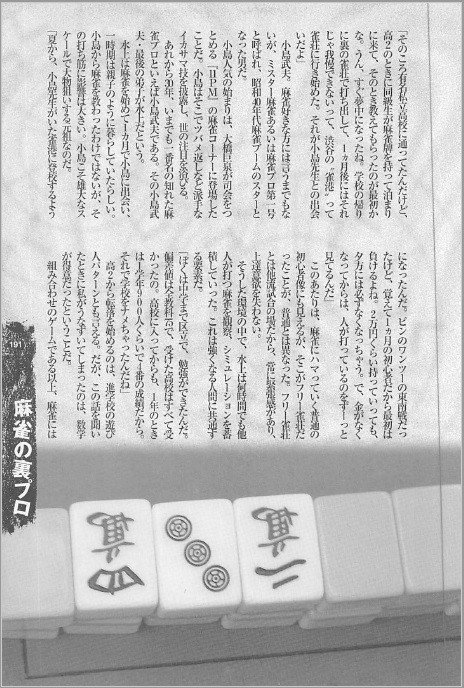 「そのころ おれ私立高校に通ってたんだけど、
高２のときに同級生が麻雀牌を持って泊まり
に来て、そのとき教えてもらったのが最初か
な。うん、すぐ夢中になったね。学校の帰り
に裏の雀荘で打ち出して、１ヵ月後にはそれ
じゃ我慢できないって、渋谷の〝雀港〟って
雀荘に行き始めた。それが小島先生との出会
いだよ」
　小島武夫。麻雀好きな方には言うまでもな
いが、ミスター麻雀あるいは麻雀プロ第一号
と呼ばれ、昭和40年代麻雀ブームのスターと
なった男だ。
　小島人気の始まりは、大橋巨泉が司会をつ
とめる『11PM』の麻雀コーナーに登場した
ことだ。小島はそこでツバメ返しなど派手な
イカサマ技を披露し、世の注目を浴びる。
　あれから30年、いまでも一番名の知れた麻
雀プロといえば小島武夫である。その小島武
夫・最後の弟子が水上だという。
　水上は麻雀を始めて１ヵ月で小島に出会い、
一時期は親子のように暮らしていたらしい。
小島から麻雀を教わったわけではないが、そ
の打ち筋に影響は大きい。小島こそ雄大なス
ケールで大物狙いする元祖なのだ。
「夏から、小島先生がいた雀荘に登校するよう
になったんだ。ピンのワンツーの東南戦だっ
たけど、覚えて１ヵ月の初心者だから最初は
負けるよね。２万円くらい持っていっても、
夕方には必ずなくなっちゃう。で、金がなく
なってからは、人が打っているのをずーっと
見てるんだ」
　このあたりは、麻雀にハマっていく普通の
初心者像にも見えるが、そこがフリー雀荘だ
ったことが、普通とは異なった。フリー雀荘
とは他流試合の場だから、常に緊張感があり、
上達意欲を失わない。
　そうした環境の中で、水上は何時間でも他
人が打つ麻雀を観察、シミュレーションを蓄
積していった。これは強くなる人間に共通す
る要素だ。
「ぼくは中学まで区立で、勉強ができたんだ。
偏差値は全教科75で、受けた高校はすべて受
かったの。高校に入ってからも、１年のとき
は１学年９００人くらいで７番の成績だから。
それで学校をナメちゃったんだね」
　高２から転落を極めるのは、進学校の遊び
人パターンとも言える。だが、この話を聞い
たときに私がうなずいてしまったのは、数学
が得意だったということだ。
　組み合わせのゲームである以上、麻雀には
191
麻雀の裏プロ
四萬
二萬